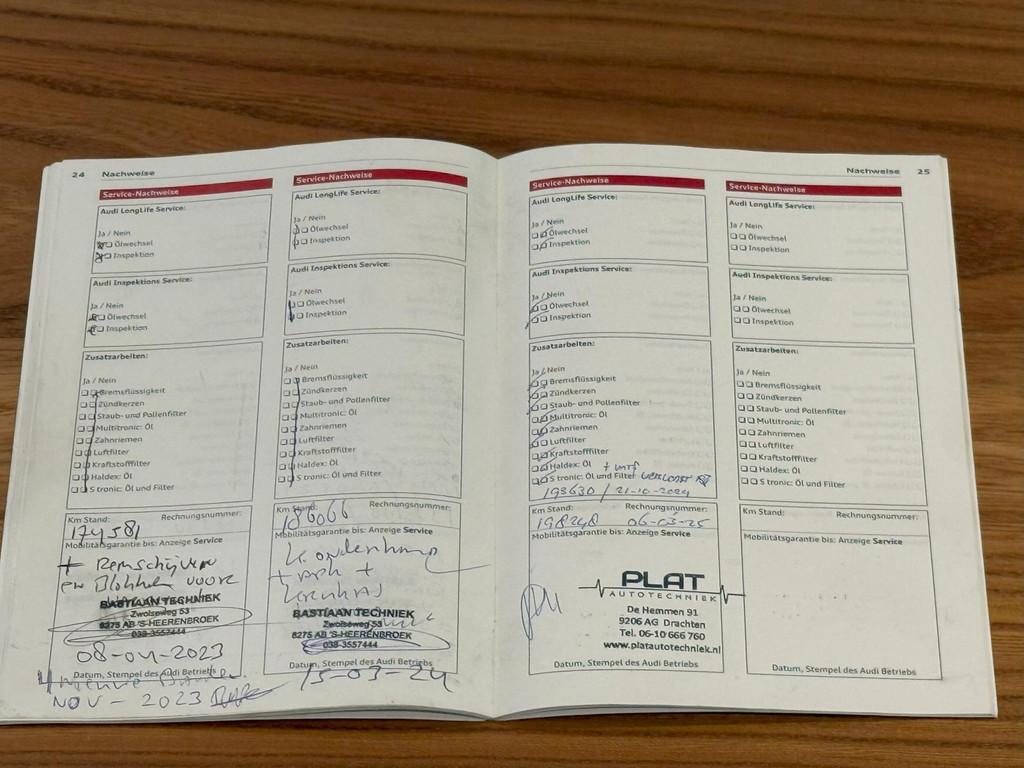 24 Nachweise
Service-Nachweise
Audi LongLife Service:
Ja / Nein
Ölwechsel
Inspektion
Audi Inspektions Service:
Ja / Nein
Ölwechsel
Inspektion
Zusatzarbeiten:
Ja / Nein
Bremsflüssigkeit
Zündkerzen
Staub- und Pollenfilter
Multitronic: Öl
Zahnriemen
Luftfilter
Kraftstofffilter
Haldex: Öl
S tronic: Öl und Filter
Km Stand: Rechnungsnummer:
174581
Mobilitätsgarantie bis: Anzeige Service
+ Remschijven
en Blokken voore
BASTIAAN TECHNIEK
Zwolseweg 53
8275 AB 'S-HEERENBROEK
038-3557444
08-04-2023
Datum, Stempel des Audi Betriebs
4 nieuwe Banden
NOV - 2023
Service-Nachweise
Audi LongLife Service:
Ja / Nein
Ölwechsel
Inspektion
Audi Inspektions Service:
Ja / Nein
Ölwechsel
Inspektion
Zusatzarbeiten:
Ja / Nein
Bremsflüssigkeit
Zündkerzen
Staub- und Pollenfilter
Multitronic: Öl
Zahnriemen
Luftfilter
Kraftstofffilter
Haldex: Öl
S tronic: Öl und Filter
Km Stand: Rechnungsnummer:
186066
Mobilitätsgarantie bis: Anzeige Service
BASTIAAN TECHNIEK
Zwolseweg 53
8275 AB 'S-HEERENBROEK
038-3557444
Datum, Stempel des Audi Betriebs
15-03-24
Nachweise 25
Service-Nachweise
Audi LongLife Service:
Ja / Nein
Ölwechsel
Inspektion
Audi Inspektions Service:
Ja / Nein
Ölwechsel
Inspektion
Zusatzarbeiten:
Ja / Nein
Bremsflüssigkeit
Zündkerzen
Staub- und Pollenfilter
Multitronic: Öl
Zahnriemen
Luftfilter
Kraftstofffilter
Haldex: Öl
S tronic: Öl und Filter
193630 / 21-10-2024
Km Stand: Rechnungsnummer:
198248 06-03-25
Mobilitätsgarantie bis: Anzeige Service
PLAT
AUTOTECHNIEK
De Hemmen 91
9206 AG Drachten
Tel. 06-10 666 760
www.platautotechniek.nl
Datum, Stempel des Audi Betriebs
Service-Nachweise
Audi LongLife Service:
Ja / Nein
Ölwechsel
Inspektion
Audi Inspektions Service:
Ja / Nein
Ölwechsel
Inspektion
Zusatzarbeiten:
Ja / Nein
Bremsflüssigkeit
Zündkerzen
Staub- und Pollenfilter
Multitronic: Öl
Zahnriemen
Luftfilter
Kraftstofffilter
Haldex: Öl
S tronic: Öl und Filter
Km Stand: Rechnungsnummer:
Mobilitätsgarantie bis: Anzeige Service
Datum, Stempel des Audi Betriebs